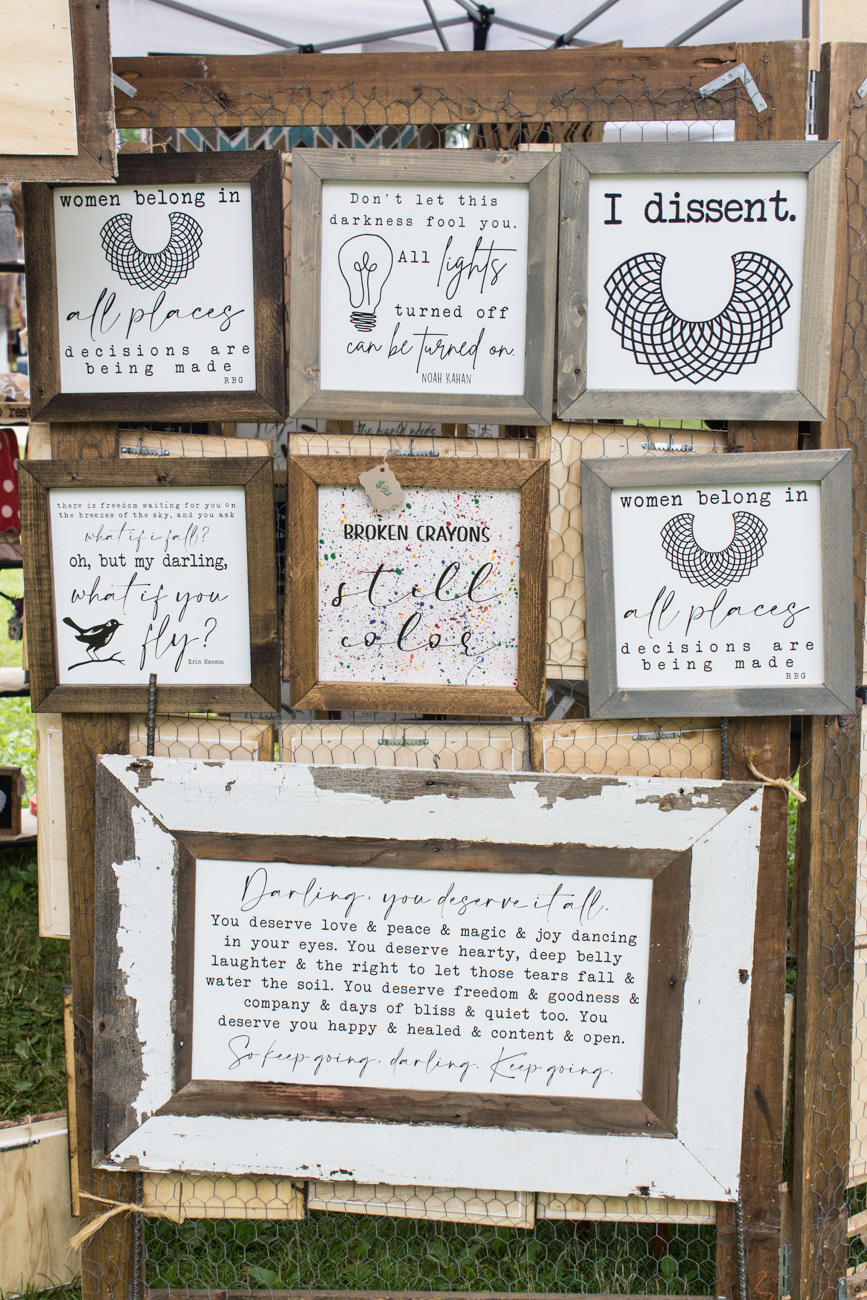 women belong in
all places
decisions are
being made
RBG
Don't let this
darkness fool you.
All lights
turned off
can be turned on.
NOAH KAHAN
I dissent.
the world needs
there is freedom waiting for you on
the breezes of the sky, and you ask
what if i fall?
oh, but my darling,
what if you
fly?
Erin Hanson
BROKEN CRAYONS
still
color
women belong in
all places
decisions are
being made
RBG
Darling, you deserve it all.
You deserve love & peace & magic & joy dancing
in your eyes. You deserve hearty, deep belly
laughter & the right to let those tears fall &
water the soil. You deserve freedom & goodness &
company & days of bliss & quiet too. You
deserve you happy & healed & content & open.
So keep going, darling. Keep going.